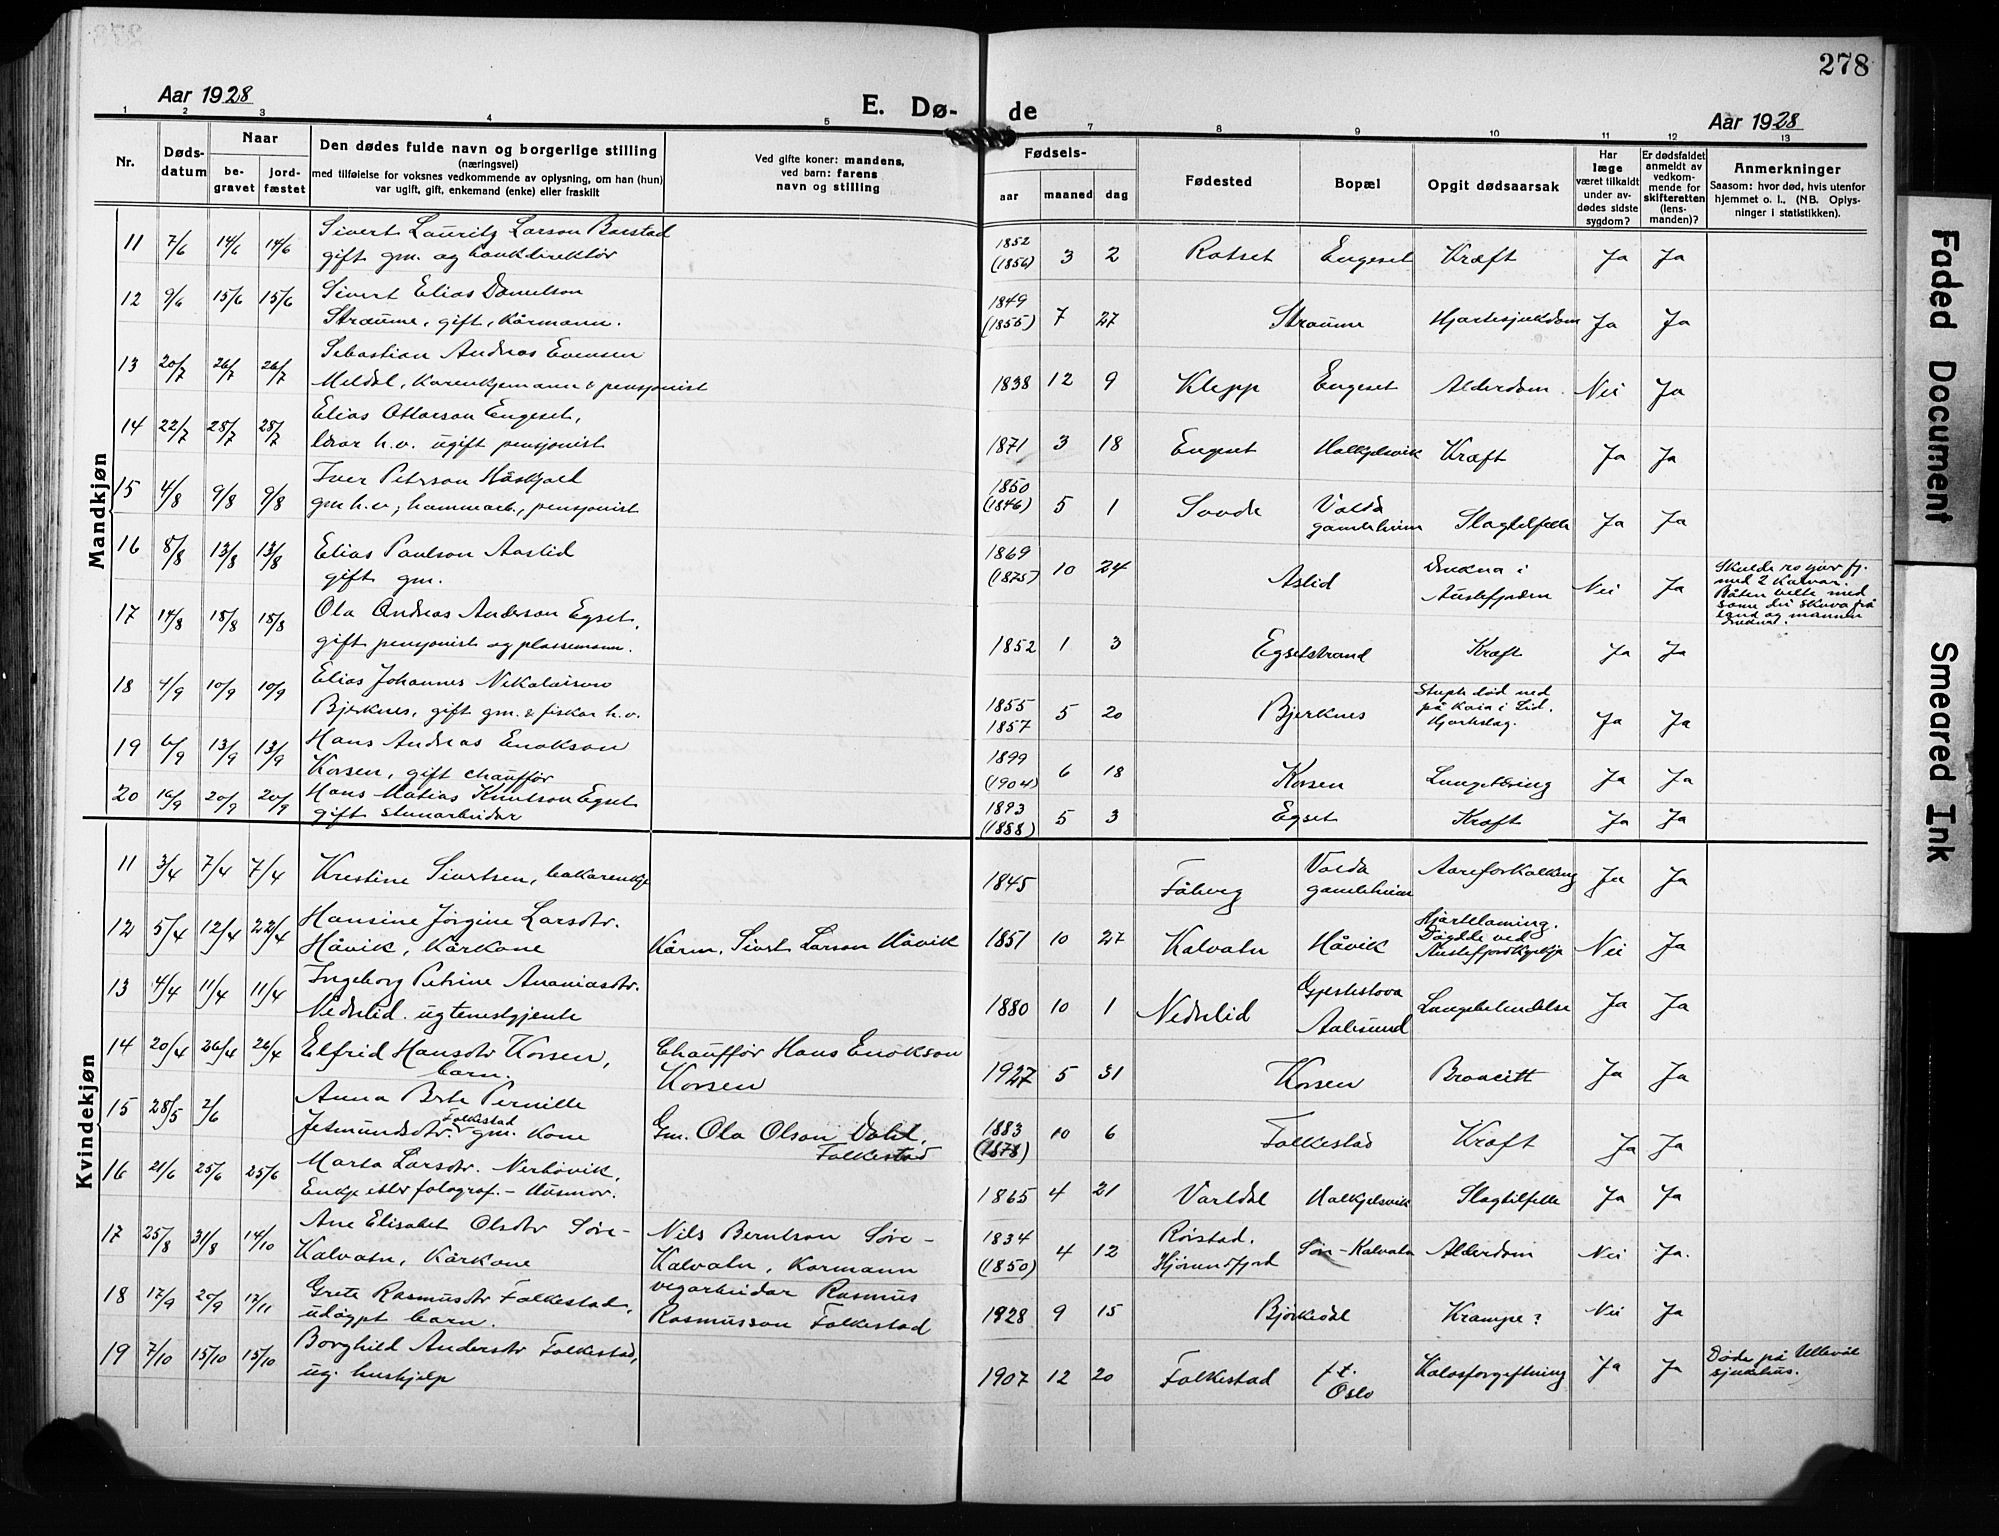 278
Aar 1928
E. Dø-
de
Aar 1928
1 2 3 4 5 7 8 9 10 11 12 13
Nr.
Døds-
datum
Naar
be-
gravet
jord-
fæstet
Den dødes fulde navn og borgerlige stilling
(næringsvei)
med tilføielse for voksnes vedkommende av oplysning, om han (hun)
var ugift, gift, enkemand (enke) eller fraskilt
Ved gifte koner: mandens,
ved barn: farens
navn og stilling
Fødsels-
aar maaned dag
Fødested
Bopæl
Opgit dødsaarsak
Har
læge
været tilkaldt
under av-
dødes sidste
sygdom?
Er dødsfaldet
anmeldt av
vedkom-
mende for
skifteretten
(lens-
manden)?
Anmerkninger
Saasom: hvor død, hvis utenfor
hjemmet o. l., (NB. Oplys-
ninger i statistikken).
Mandkjøn
11 7/6 14/6 14/6 Sivert Lauritz Larson Barstad
gift gm. og bankdirektør
1852
(1856) 3 2 Rotset Engeset Kræft Ja Ja
12 9/6 15/6 15/6 Sivert Elias Danielson
Straume, gift, Kårmann.
1849
(1855) 7 27 Straume Hjartesjukdom Ja Ja
13 20/7 26/7 26/7 Sebastian Andreas Evensen
Meldal, Karenkjemann & pensjonist
1838 12 9 Klepp Engeset Alderdom. Nei Ja
14 22/7 28/7 28/7 Elias Ottarson Engeset,
lærar h.v. ugift pensjonist
1871 3 18 Engeset Halkjelsvik Kræft Ja Ja
15 4/8 9/8 9/8 Iver Peterson Håskjold
gm h.v., hammarb., pensjonist
1850
(1846) 5 1 Sovde Volda
gamleheim Slagtilfelle Ja Ja
16 8/8 13/8 13/8 Elias Paulson Aaslid
gift gm.
1869
(1875) 10 24 Aslid Drukna i
Austefjorden Nei Ja
Skulde ro yver fj.
med 2 karvar.
Båten velte med
same dei skuva frå
land og mannen
druknet.
17 14/8 18/8 18/8 Ola Andreas Anderson Egset,
gift pensjonist og plassemann.
1852 1 3 Egsetstrand Kræft Ja Ja
18 4/9 10/9 10/9 Elias Johannes Nikolaison
Bjerknes, gift gm. & fiskar h.v.
1855
1857 5 20 Bjerknes Stupte død ned
på kaia i Lid.
Hjarteslag. Ja Ja
19 6/9 13/9 13/9 Hans Andreas Enokson
Korsen, gift chauffør
1899
(1904) 6 18 Korsen Lungetæring Ja Ja
20 16/9 20/9 20/9 Hans Matias Knutson Egset
gift stenarbeidar
1893
(1888) 5 3 Egset Kræft Ja Ja
Kvindekjøn
11 3/4 7/4 7/4 Kristine Sivertsen, bakarenkje
1845 Fåberg Volda
gamleheim Aareforkalking Ja Ja
12 5/4 12/4 22/4 Hansine Jørgine Larsdtr.
Håvik, Kårkone Kårm. Sivert Larson Håvik
1851 10 27 Kalvatn Håvik Hjartelaming.
Døydde ved
Austefjordkyrkje Nei Ja
13 4/4 11/4 11/4 Ingeborg Petrine Ananiasdtr.
Nedrelid. ug tenestgjente
1880 10 1 Nedrelid Gjestestova
Aalesund Lungebetendelse Ja Ja
14 20/4 26/4 26/4 Elfrid Hansdtr Korsen,
barn. Chauffør Hans Enokson
Korsen
1927 5 31 Korsen Broncitt Ja Ja
15 28/5 2/6 Anna Berte Pernille
Jetmundsdtr. Folkestad gm. Kone Gm. Ola Olson Dahl,
Folkestad
1883
(1878) 10 6 Folkestad Kræft Ja Ja
16 21/6 25/6 25/6 Marta Larsdtr. Nerhövik,
Enkje etter fotograf. – Husmor.
1865 4 21 Vartdal Halkjelsvik Slagtilfelle Ja Ja
17 25/8 31/8 14/10 Ane Elisabet Olsdtr Søre-
Kalvatn, Kårkone Nils Berntson Søre-
Kalvatn, Kormann
1834
(1850) 4 12 Rørstad.
Hjørundfjord Søre-Kalvatn Alderdom Nei Ja.
18 17/9 20/9 17/11 Grete Rasmusdtr Folkestad,
udøypt barn. vegarbeidar Rasmus
Rasmusson Folkestad
1928 9 15 Bjørkedal Krampe? Nei Ja
19 7/10 15/10 15/10 Borghild Andersdtr Folkestad,
ug. hushjelp
1907 12 20 Folkestad f.t.
Oslo Kolosforgiftning Ja Ja Døde på Ullevål
sjukehus.
Faded Document
Smeared Ink